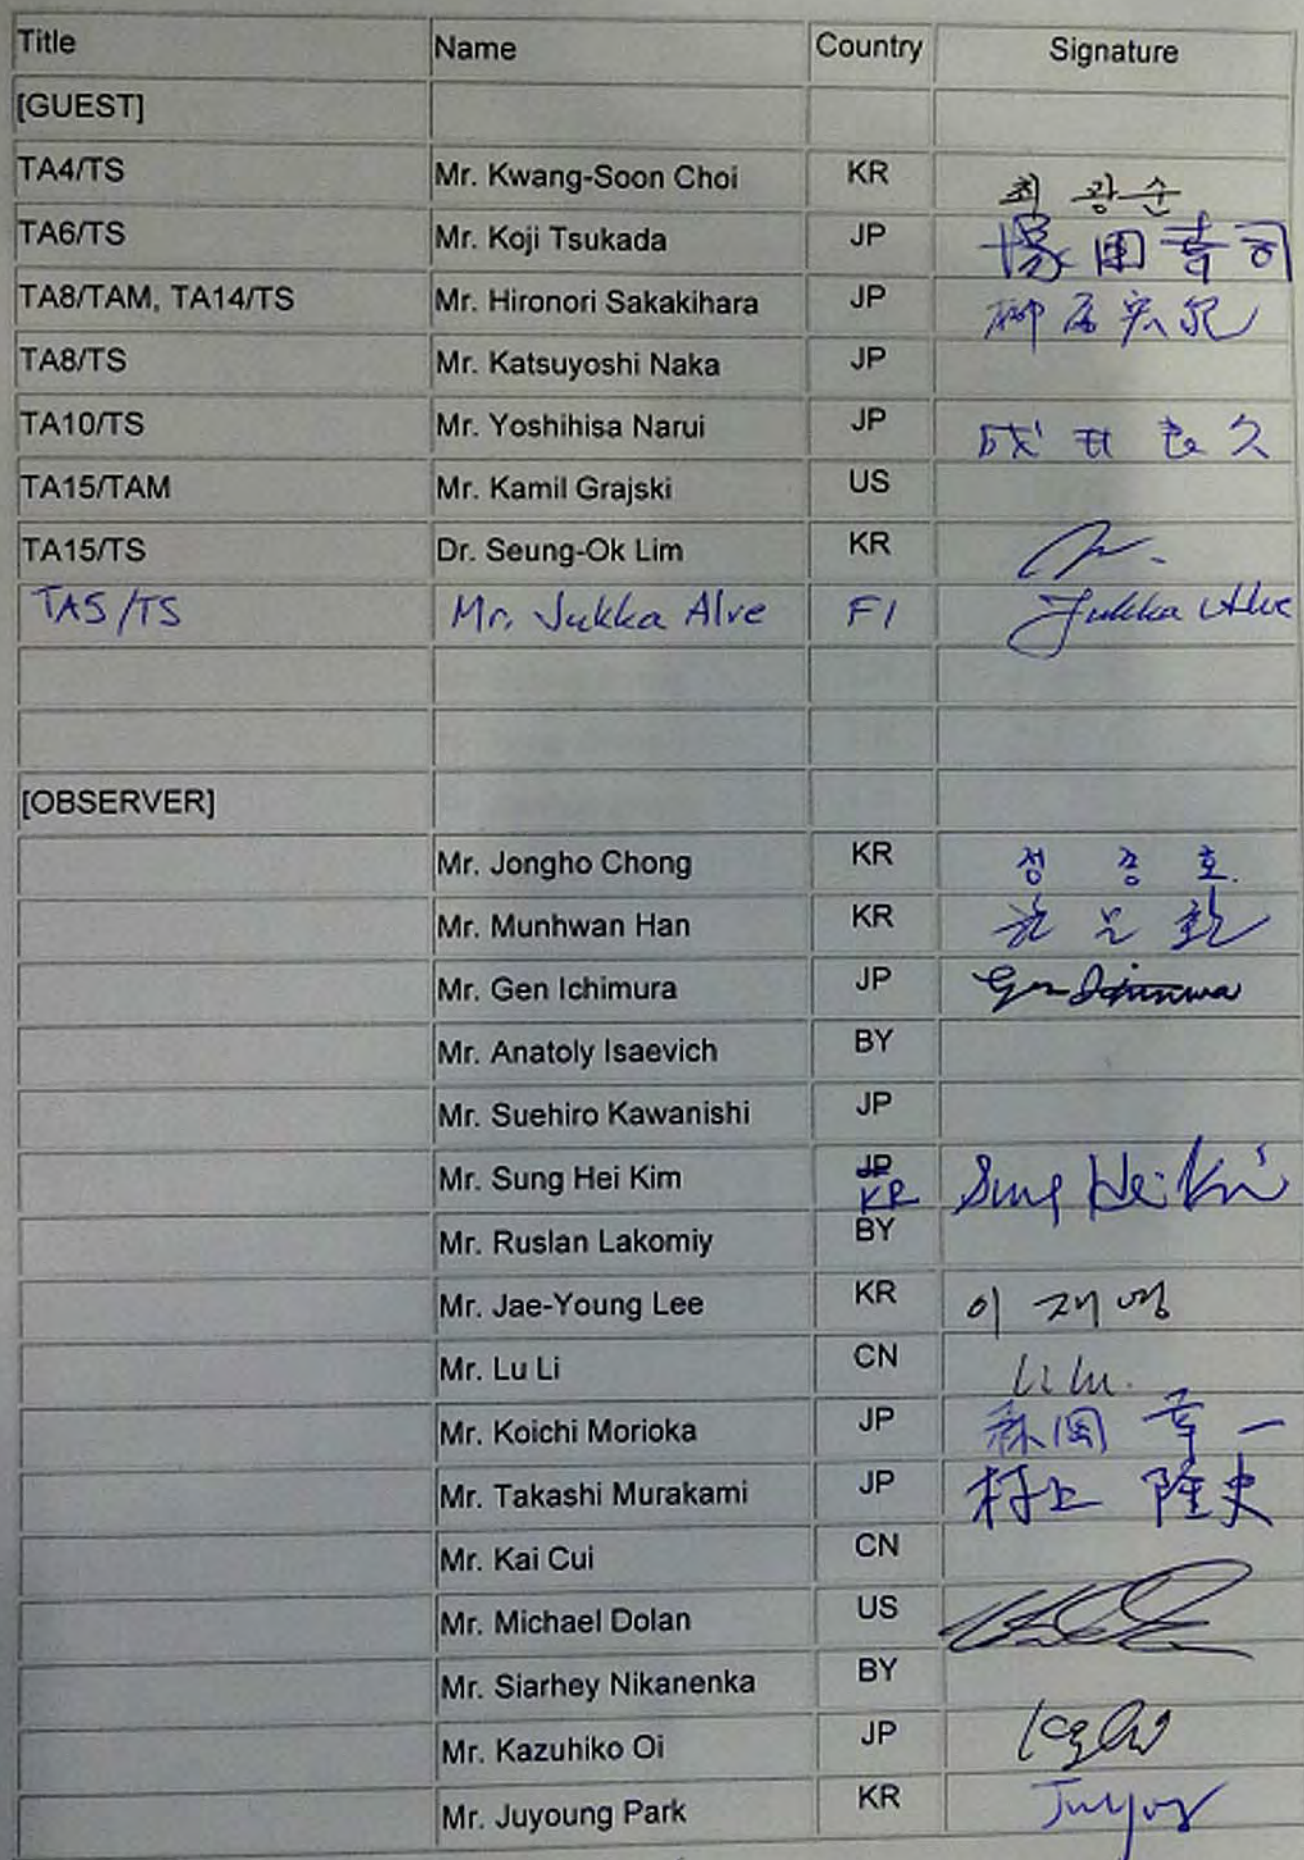 Title Name Country Signature
[GUEST]
TA4/TS Mr. Kwang-Soon Choi KR 최 광 순
TA6/TS Mr. Koji Tsukada JP 塚田幸司
TA8/TAM, TA14/TS Mr. Hironori Sakakihara JP
TA8/TS Mr. Katsuyoshi Naka JP
TA10/TS Mr. Yoshihisa Narui JP 成井良久
TA15/TAM Mr. Kamil Grajski US
TA15/TS Dr. Seung-Ok Lim KR
TA5/TS Mr. Jukka Alve FI Jukka Alve
[OBSERVER]
Mr. Jongho Chong KR 정 종 호
Mr. Munhwan Han KR
Mr. Gen Ichimura JP Gen Ichimura
Mr. Anatoly Isaevich BY
Mr. Suehiro Kawanishi JP
Mr. Sung Hei Kim JP KR Sung Hei Kim
Mr. Ruslan Lakomiy BY
Mr. Jae-Young Lee KR 이 재영
Mr. Lu Li CN Li Lu.
Mr. Koichi Morioka JP 森岡 幸一
Mr. Takashi Murakami JP 村上 隆史
Mr. Kai Cui CN
Mr. Michael Dolan US
Mr. Siarhey Nikanenka BY
Mr. Kazuhiko Oi JP
Mr. Juyoung Park KR